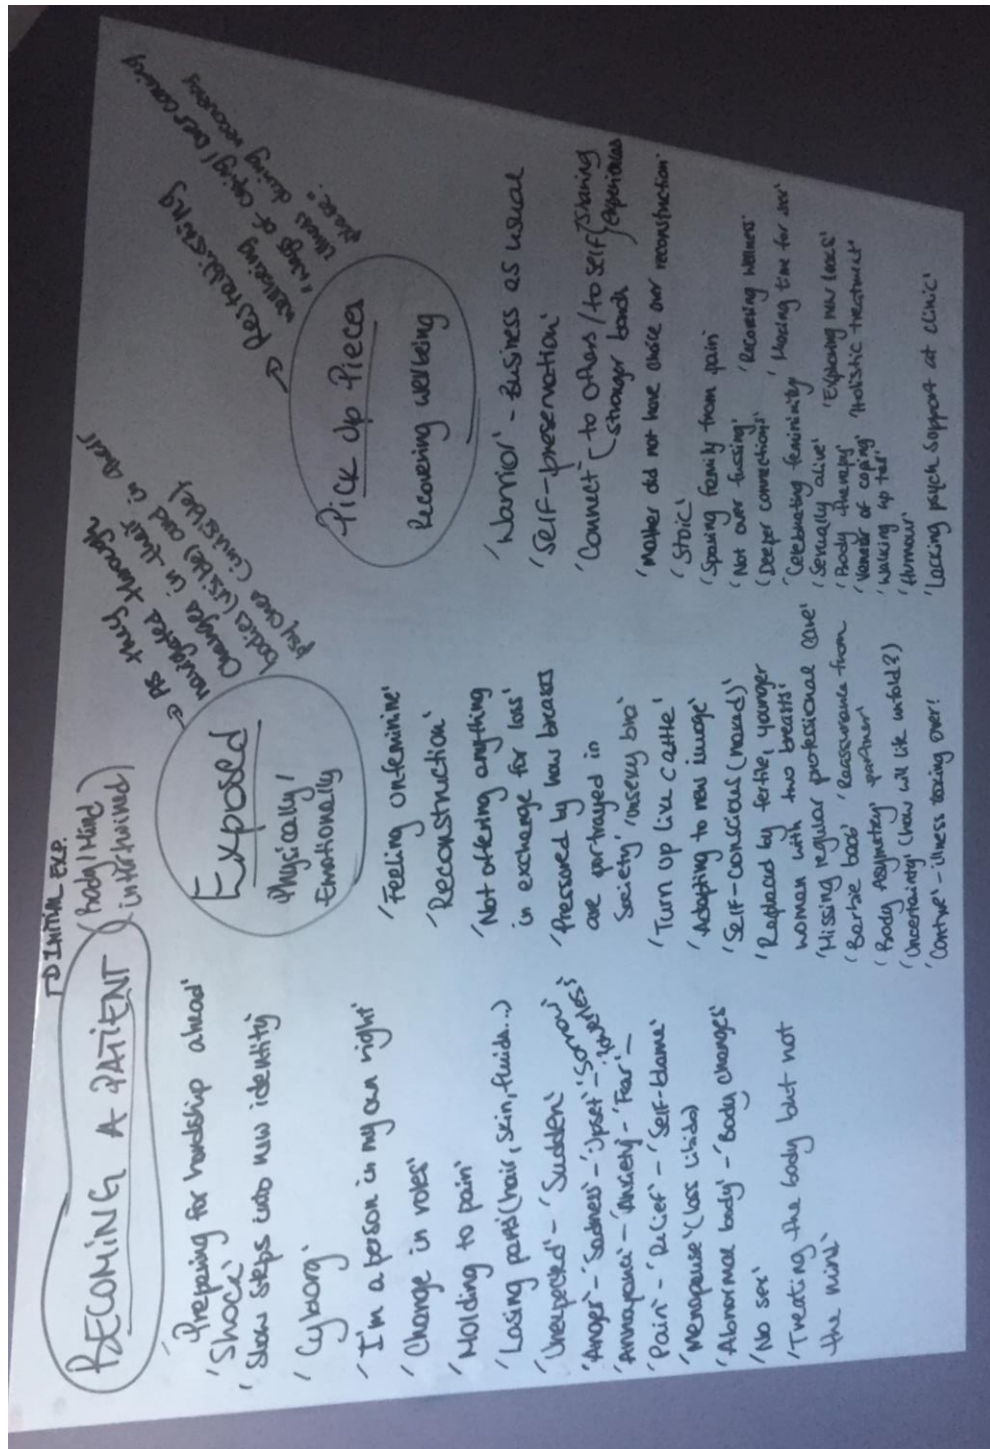 → INITIAL EXP.
BECOMING A PATIENT
(Body/Mind)
intertwined
'Preparing for hardship ahead'
'Shock'
'Slow steps into new identity
'Cyborg'
'I'm a person in my own right'
'Change in roles'
'Holding to pain'
'Losing parts' (hair, skin, fluids...)
'Unexpected' - 'Sudden'
'Anger' - 'Sadness' - 'Upset' - 'Sorrow'
'Annoyance' - 'Anxiety' - 'Fear' -
'Pain' - 'Relief' - 'Self-blame'
'Menopause' (loss libido)
'Abnormal body' - 'Body changes'
'No sex'
'Treating the body but not
the mind'
→ As they
navigated through
changes in their
bodies (visible) and in
psyches (invisible).
Exposed
Physically/
Emotionally
'Feeling unfeminine'
'Reconstruction'
'Not offering anything
in exchange for loss'
'Pressured by how breasts
are portrayed in
society' 'unsexy bra'
'Turn up like cattle'
'Adapting to new image'
'Self-conscious (naked)'
'Replaced by fertile, younger
woman with two breasts'
'Missing regular professional care'
'Barbie boob' 'Reassurance from
'Body Asymetry' partner'
'Uncertainty' (how will life unfold?)
- illness taking over!
→ Reestablishing
wellbeing
"ways of coping/overcoming
illness during recovery
Pick Up Pieces
Recovering wellbeing
'Warrior' - Business as usual
'Self-preservation'
'Connect' (to others/to self) (sharing
experiences
stronger bonds
'Mother did not have choice over reconstruction'
'Stoic'
'Sparing family from pain'
'Not over fussing' 'Recovering wellness'
'Deeper connections'
'Celebrating femininity' 'Making time for self'
'Sexually alive'
'Body therapy' 'Exploring new looks'
'Veneer of coping' 'Holistic treatment'
'Walking up tall'
'Humour'
'Lacking psych support at clinic'